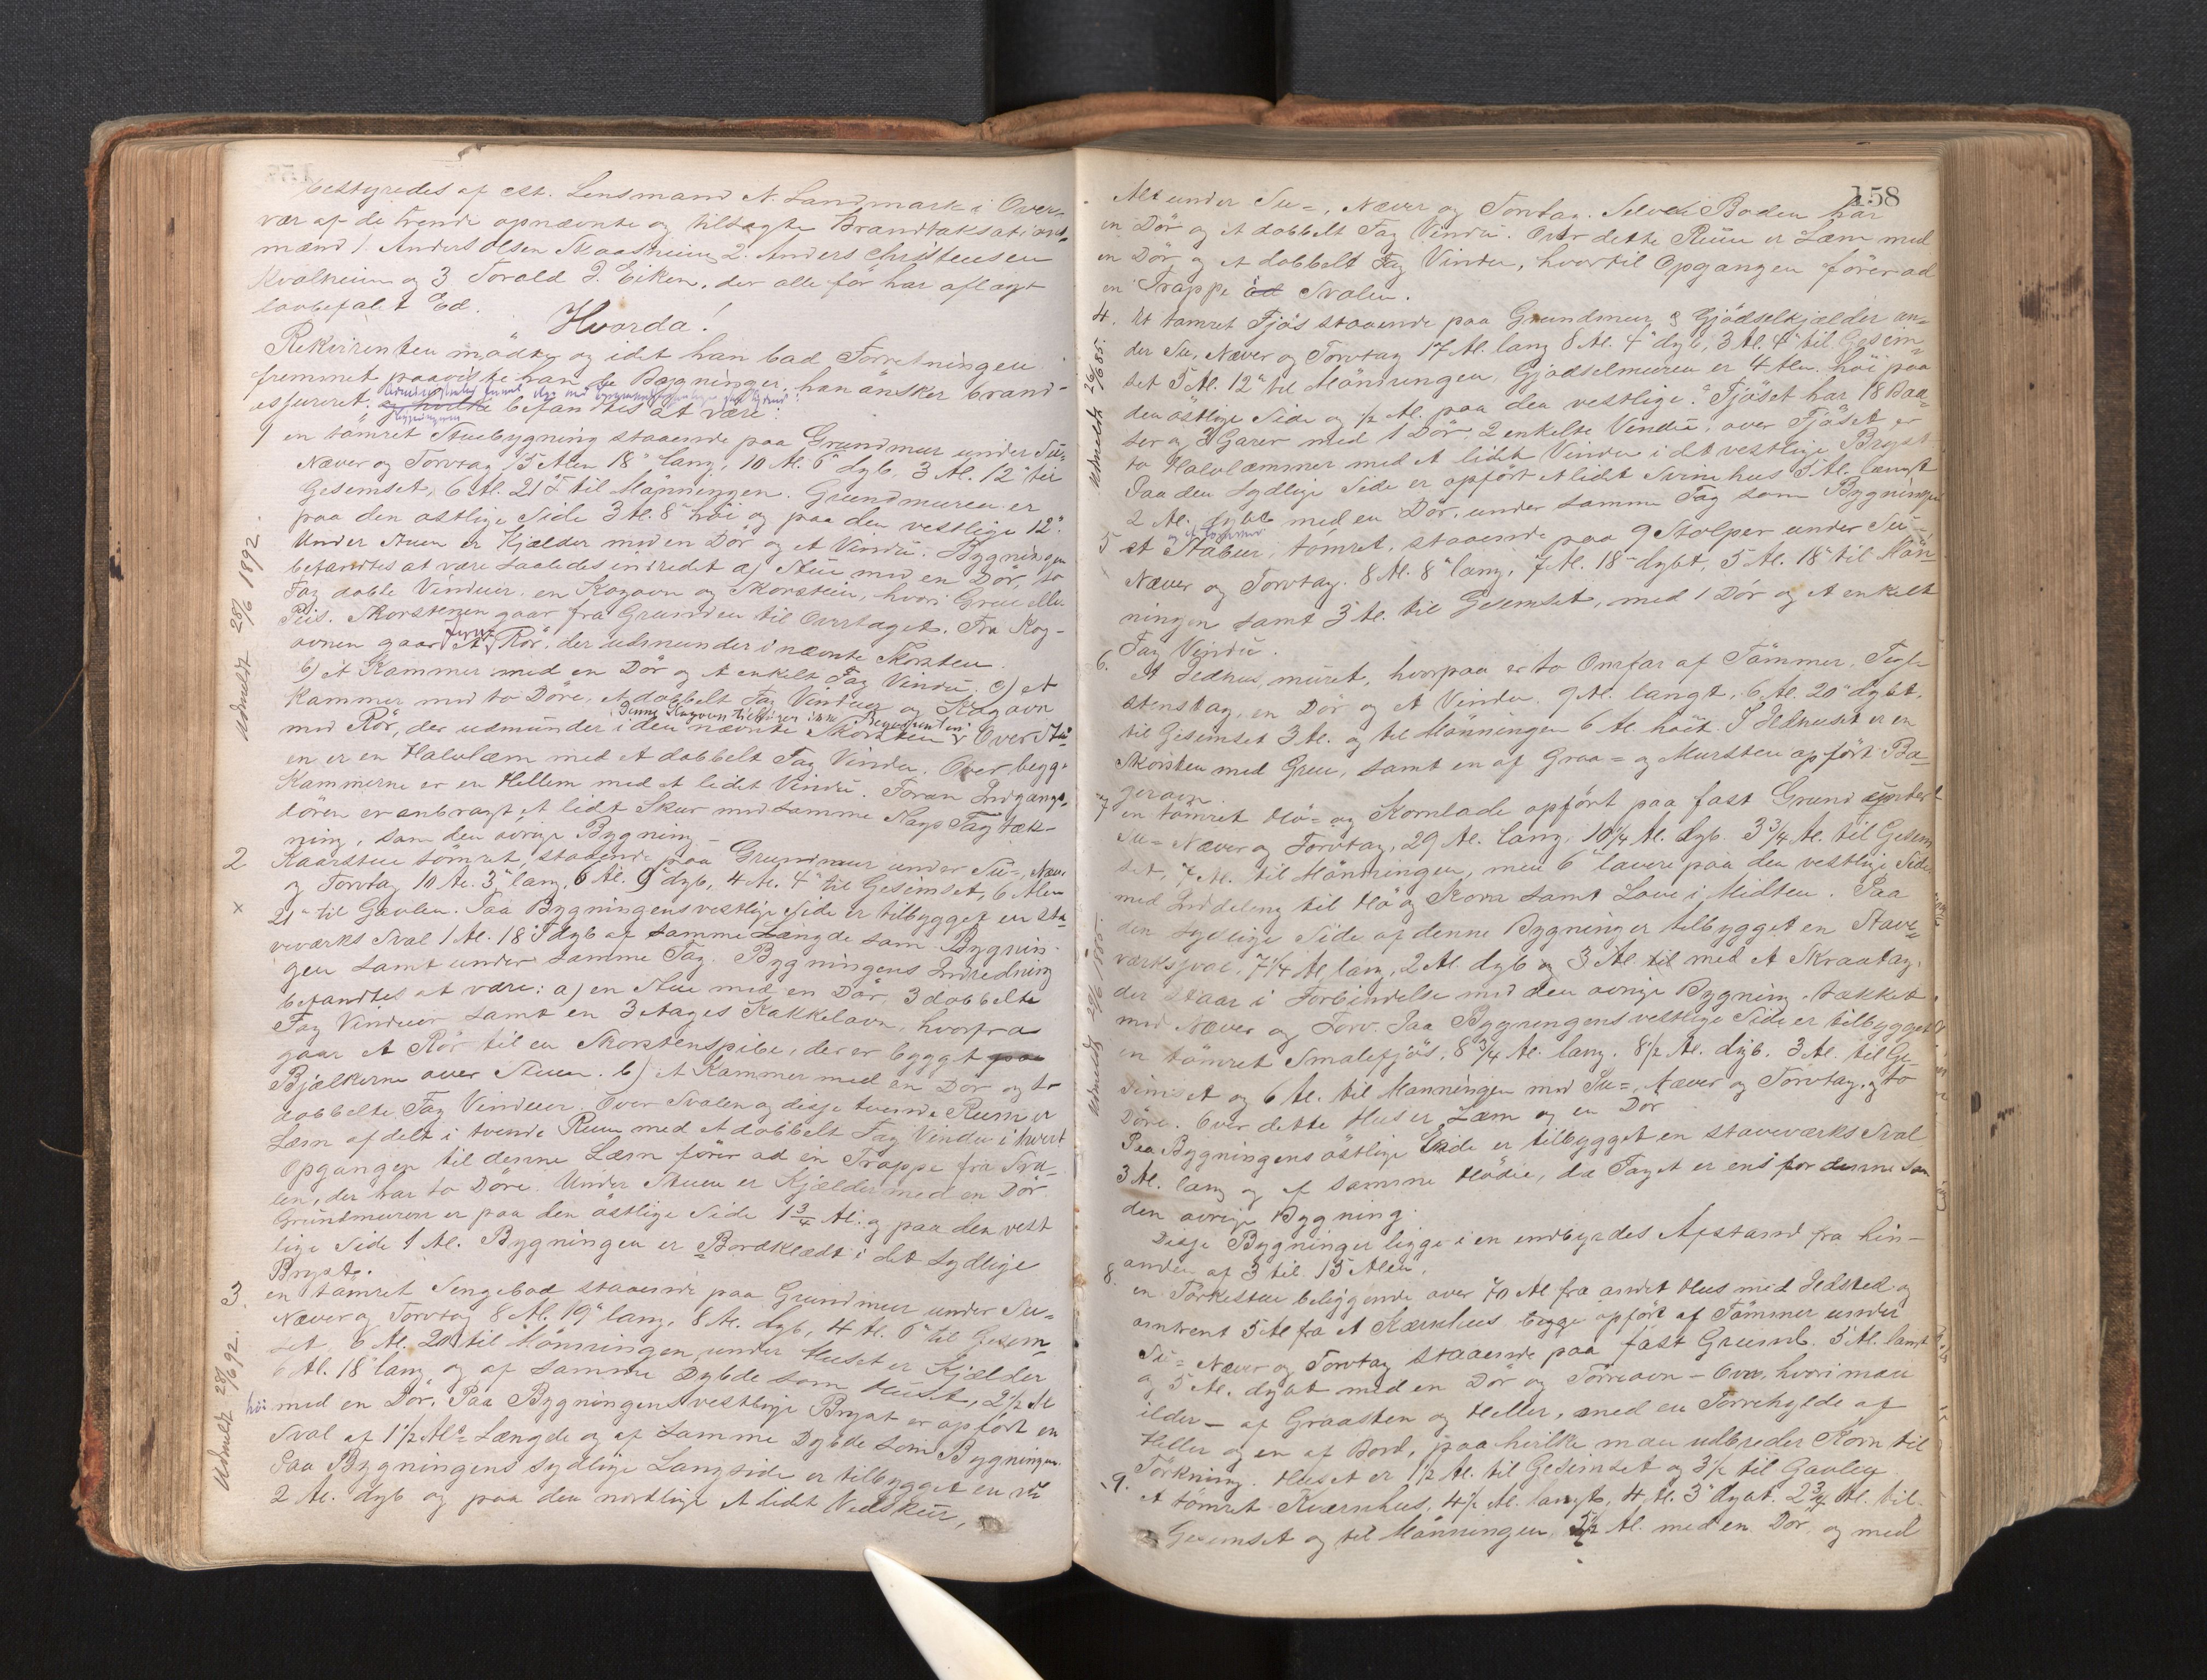 bestyredes af cst. Lensmand N. Landmark i Over-
vær af de trende opnævnte og tiltagte Brandtaksations-
mænd 1. Anders Olsen Skaasheim 2. Anders Christensen
Kvalheim og 3 Torald J. Eiken, der alle før har aflagt
lovbefalet Ed.
Hvorda!
Rekvirenten mødte og idet han bad Forretningen
fremmet paaviste han de Bygninger, han ønsker brand-
assureret, og hvilke befandtes at være:
1 en tømret Stuebygning staaende paa Grundmur under Su-
Næver og Torvtag 15 Alen 18" lang, 10 Al. 6" dyb, 3 Al. 12" til
Gesemset, 6 Al. 21" til Mønningen. Grundmuren er
paa den østlige Side 3 Al. 8" høi og paa den vestlige 12".
Under Stuen er Kjælder med en Dør og et Vindu. Bygningen
befandtes at være saaledes indredet a) Stue med en Dør, to
Fag doble Vinduer, en Kogovn og Skorsten, hvori Grue eller
Peis. Skorstenen gaar fra Grunden til Overtaget. Fra Kog-
ovnen gaar et Rør, der udmunder i nævnte Skorsten.
b) et Kammer med en Dør og et enkelt Fag Vindu. c) et
Kammer med to Døre, et dobbelt Fag Vinduer og Kogovn
Denne Kogovn tilhører ikke Regvirenten
med Rør, der udmunder i den nævnte Skorsten. Over Stu-
en er en Halvlæm med et dobbelt Fag Vindu. Over begge
Kammerne er en Hellem med et lidet Vindu. Foran Indgangs-
døren er anbragt et lidt Skur med samme Slags Tagtæk-
ning, som den øvrige Bygning.
Udmeldt 28/6 1892.
2 Kaarstue tømret, staaende paa Grundmur under Su-, Næver
og Torvtag 10 Al. 3" lang, 6 Al. 9" dyb, 4 Al. 4" til Gesimset, 6 Alen
x 21" til Gavlen. Paa Bygningens vestlige Side er tilbygget en sta
veværks Sval 1 Al. 18" dyb af samme Længde som Bygnin-
gen samt under samme Tag. Bygningens Indredning
befandtes at være: a) en Stue med en Dør, 3 dobbelte
Fag Vinduer samt en 3 Etages Kakkelovn, hvorfra
gaar et Rør til en Skorstenspibe, der er bygget paa
Bjælkerne over Stuen. b) et Kammer med en Dør og to
dobbelte Fag Vinduer. Over Svalen og disse tvende Rum er
Læm afdelt i tvende Rum med et dobbelt Fag Vindu i hvert
Opgangen til denne Læm fører ad en Trappe fra Sva-
len, der har to Døre. Under Stuen er Kjælder med en Dør.
Grundmuren er paa den østlige Side 1 3/4 Al. og paa den vest
lige Side 1 Al. Bygningen er Bordklædt i det sydlige
Bryst.
3. en tømret Sengebod staaende paa Grundmur under Su-
Næver og Torvtag 8 Al. 19" lang, 8 Al. dyb, 4 Al. 6" til Gesem-
set, 6 Al. 20" til Mønningen, under Huset er Kjælder
6 Al. 18" lang og af samme Dybde som Huset, 2 1/2 Al
høi med en Dør. Paa Bygningens vestlige Bryst er opført en
Sval af 1 1/2 Al's Længde og af samme Dybde som Bygningen.
Paa Bygningens sydlige Langside er tilbygget en
2 Al. dyb og paa den nordlige et lidt Vedskur,
Udmeldt 28/6 92.
158
Alt under Su-, Næver og Torvtag. Selve Boden har
en Dør og et dobbelt Fag Vindu. Over dette Rum er Læm med
en Dør og et dobbelt Fag Vindu, hvortil Opgangen fører ad
en Trappe Svalen.
4. Et tømret Fjøs staaende paa Grundmur og Gjødselkjælder un-
der Su, Næver og Torvtag 17 Al. lang 8 Al. 4" dyb, 3 Al. 4" til Gesim-
set 5 Al. 12" til Mønningen, Gjødselmuren er 4 Alen høi paa
den østlige Side og 1/2 Al. paa den vestlige. Fjøset har 18 Baa-
ser og 3 Garer med 1 Dør, 2 enkelte Vinduer, over Fjøset er
to Halvlæmmer med et lidet Vindu i det vestlige Bryst
Paa den sydlige Side er opført et lidet Svinehus 3 Al. langt
2 Al. dybt med en Dør, under samme Tag som Bygningen
Udmeldt 29/6 85.
5 et Stabur, tømret, staaende paa 9 Stolper under Su-
Næver og Torvtag. 8 Al. 8" lang, 7 Al. 18" dybt, 5 Al. 18" til Møn-
ningen samt 3 Al. til Gesemset, med 1 Dør og et enkelt
Fag Vindu.
6. Et Ildhus, muret, hvorpaa er to Omfar af Tømmer, Tegl-
stenstag, en Dør og et Vindu. 9 Al. langt, 6 Al. 20" dybt,
til Gesemset 3 Al. og til Mønningen 6 Al. høit. I Ildhuset er en
Skorsten med Grue, samt en af Graa- og Mursten opført Ba-
gerovn.
7 en tømret Hø- og Kornlade opført paa fast Grund under
Su- Næver og Torvtag, 29 Al. lang, 10 1/4 Al. dyb 3 3/4 Al. til Gesem
set, 7 Al. til Mønningen, men 6" lavere paa den vestlige Side
med Inddeling til Hø og Korn samt Love i Midten. Paa
den sydlige Side af denne Bygning er tilbygget en Stave-
værkssval, 7 1/4 Al lang, 2 Al. dyb og 3 Al. til med et Skraatag,
der staar i Forbindelse med den øvrige Bygning, tækket
med Næver og Torv. Paa Bygningens vestlige Side er tilbygget
en tømret Smalefjøs, 8 3/4 Al. lang, 8 1/2 Al. dyb, 3 Al. til Ge-
simset og 6 Al. til Mønningen med Su-, Næver og Torvtag, og to
Døre. Over dette Hus er Læm og en Dør
Paa Bygningens østlige Side er tilbygget en staveværks Sval
3 Al. lang og af samme Hødie, da Taget er ens for denne som
den øvrige Bygning.
Disse Bygninger ligge i en indbyrdes Afstand fra hin-
anden af 3 til 15 Alen.
Udmeldt 29/6 1885.
8. en Tørkestue beliggende over 70 Al fra andet Hus med Ildsted og
omtrent 5 Al fra et Kværnhus begge opført af Tømmer under
Su- Næver og Torvtag staaende paa fast Grund. 5 Al. langt
og 5 Al. dybt med en Dør og Tørreovn - Ovn, hvori man
ilder - af Graasten og Heller, med en Tørrehylde af
Heller og en af Bord, paa hvilke man udbreder Korn til
Tørkning. Huset er 1 1/2 Al. til Gesimset og 3 1/2 til Gavlen
9. et tømret Kværnhus, 4 1/2 Al. langt, 4 Al. 3" dybt. 2 3/4 Al. til
Gesemset og til Mønningen Al. med en Dør, og med